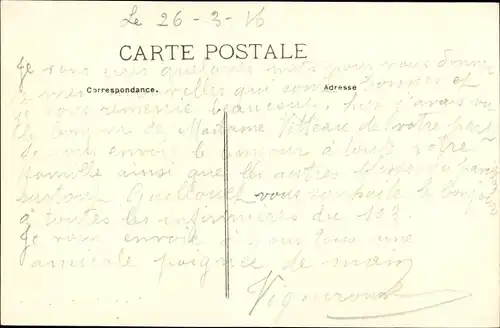 Le 26 - 3 - 16
CARTE POSTALE
Correspondance.
Adresse
Je vous quelques mots pour vous donner
nouvelles qui sont bonnes et
je vous remercie beaucoup. hier j'avais
le bonjour de Madame Vitteau de votre part
Je vous envoie le bonjour à toute votre
famille ainsi que les autres
surtout Guillouet vous souhaite le bonjour
à toutes les infirmières du 103.
Je vous envoie à vous tous une
amicale poignée de main
Vigouroux